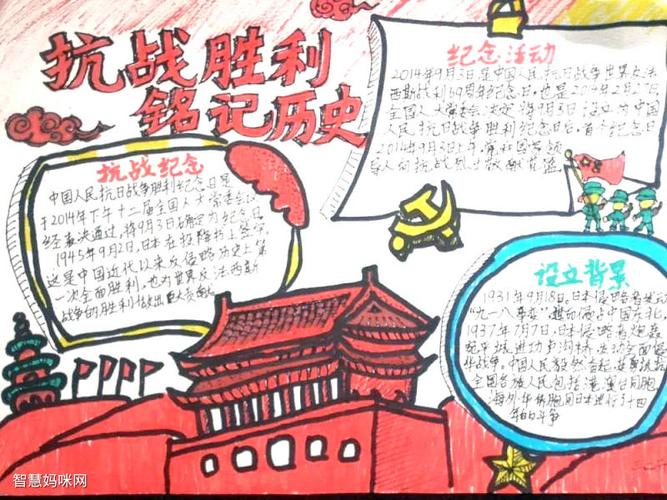 抗战胜利
铭记历史
纪念活动
2014年9月3日是中国人民抗日战争世界反法
西斯战利69周年纪念日,也是2014年2月27日
全国人大常委会决定将9月3日设立为中国
人民抗日战争胜利纪念日后,首个纪念日
2014年9月3日上午,党和国家领
导人向抗战烈士敬献花篮
抗战纪念
中国人民抗日战争胜利纪念日是
于2014年下午十二届全国人大常委会
经表决通过,将9月3日确定为纪念日
1945年9月2日,日本在投降书上签字
这是中国近代以来反侵略历史上第
一次全面胜利,也为世界反法西斯
战争的胜利做出巨大贡献
设立背景
1931年9月18日,日本侵略者
"九一八事变"占中国东北
1937年7月7日,日本侵略者炮轰
宛平城进攻卢沟桥,发动全面
华战争。中国人民毅然奋起
全国各族人民包括港澳台同胞
海外华侨胞同日本进行了十四
年的斗争
智慧妈咪网